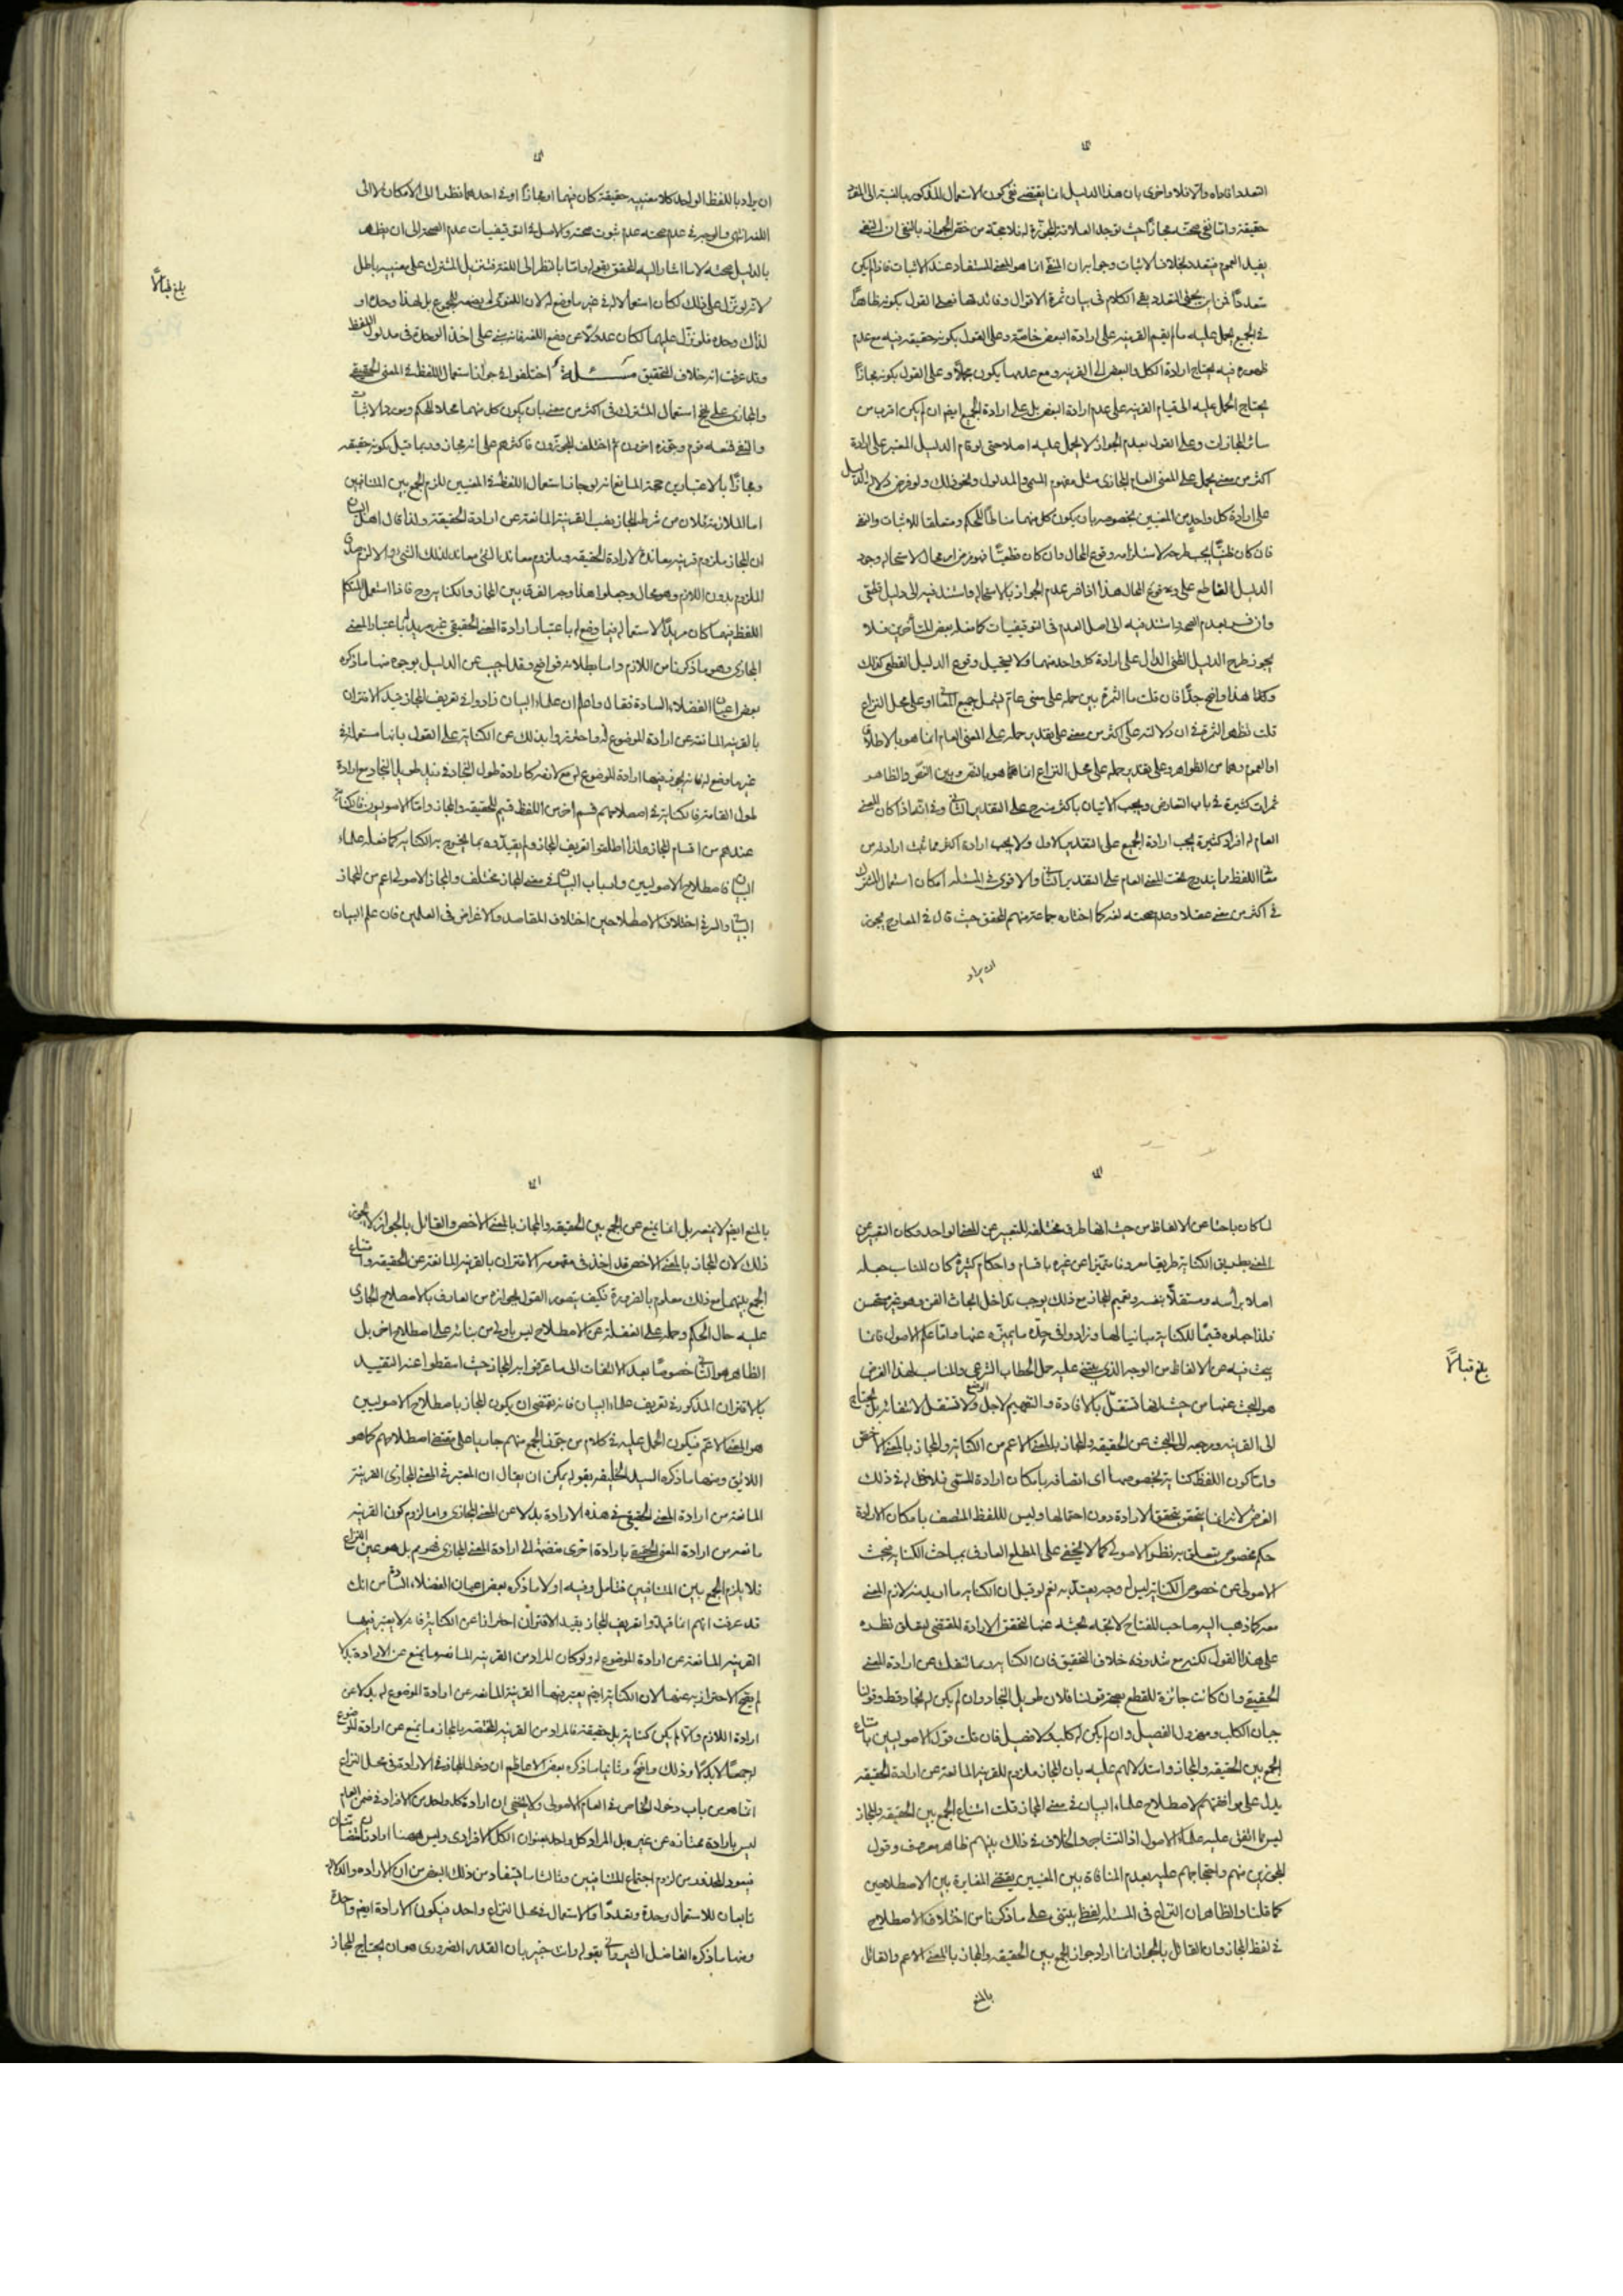 التعدد افاده والا فلا واخرى بان هذا الدليل انما يقتضى نفى كون الاستعمال المذكور بالنسبة الى المفرد
حقيقة واما نفى صحته مجازا حيث توجد العلاقة المجوزة له فلا حجة من خص الجواز بالنفى ان النفى
يفيد العموم فيتعدد بخلاف الاثبات وجوابه ان النفى انما هو للمعنى المستفاد عند الاثبات فاذا لم يكن
متعددا فمن اين يجئ التعدد بقى الكلام فى بيان ثمرة الاقوال وفائدتها فعلى القول بكونه ظاهرا
فى الجميع يحمل عليه ما لم يقم القرينه على ارادة البعض خاصة وعلى القول بكونه حقيقة فيه مع عدم
ظهوره فيه يحتاج ارادة الكل والبعض الى القرينه ومع عدمها يكون مجملا وعلى القول بكونه مجازا
يحتاج الحمل عليه الى قيام القرينه على عدم ارادة البعض بل على ارادة الجميع ايضا ان لم يكن اقرب من
سائر المجازات وعلى القول بعدم الجواز لا يحمل عليه اصلا حتى لو قام الدليل المعتبر على ارادة
اكثر من معنى يحمل على المعنى العام المجازى مثل مفهوم المسمى والمدلول ونحو ذلك ولو فرض دلالة الدليل
على ارادة كل واحد من المعنيين بخصوصه بان يكون كل منهما مناطا للحكم ومتعلقا للاثبات والنفى
فان كان ظنيا يجب طرحه لاستلزامه وقوع المحال وان كان قطعيا فهو فرض امر محال لاستحالة وجود
الدليل القاطع على وقوع المحال هذا اذا فسر عدم الجواز بالاستحالة واستند فيه الى دليل قطعى
وان فسر بعدم الصحة واستند فيه الى اصل العدم فى التوقيفيات كما فعله بعض المتأخرين فلا
يجوز طرح الدليل الظنى الدال على ارادة كل واحد منهما ولا يستحيل وقوع الدليل القطعى كذلك
وكل هذا واضح جدا فان قلت ما الثمرة بين حمله على معنى عام يشمل جميع المعانى او على محل النزاع
قلت تظهر الثمرة فى ان دلالته على اكثر من معنى على تقدير حمله على المعنى العام انما هو بالاطلاق
او العموم وهما من الظواهر وعلى تقدير حمله على محل النزاع انما هو بالنص وبين النص والظاهر
ثمرات كثيرة فى باب التعارض ويجب الاتيان باكثر من فرد على التقدير الثانى وفى انه اذا كان للمعنى
العام له افراد كثيرة يجب ارادة الجميع على التقدير الاول ولا يجب ارادة اكثر مما ثبت ارادته من
معانى اللفظ مما يندرج تحت المعنى العام على التقدير الثانى والاقوى فى المسئله امكان استعمال المشترك
فى اكثر من معنى عقلا وعدم صحته لغة كما اختاره جماعة منهم المحقق حيث قال فى المعارج يجوز
ان يراد
ان يراد باللفظ الواحد كلا معنييه حقيقة كان فيهما او مجازا او فى احدهما نظرا الى الامكان لا الى
اللغة انتهى والوجه فى عدم صحته عدم ثبوت صحته والاصل فى التوقيفيات عدم الصحة الى ان يظهر
بالدليل صحته لا ما اشار اليه المحقق بقوله واما بالنظر الى اللغة فتنزيل المشترك على معنييه باطل
لانه لو نزل على ذلك لكان استعمالا له فى غير ما وضع له لان اللغوى لم يضعه للمجموع بل لهذا وحده او
لذاك وحده فلو نزل عليهما لكان عدولا عن وضع اللغة فانه مبنى على اخذ الوحدة فى مدلول اللفظ
وقد عرفت انه خلاف التحقيق مسئلة اختلفوا فى جواز استعمال اللفظ فى المعنى الحقيقى
والمجازى على نحو استعمال المشترك فى اكثر من معنى بان يكون كل منهما محلا للحكم ومورد الاثبات
والنفى فمنعه قوم وجوزه اخرون ثم اختلف المجوزون فاكثرهم على انه مجاز وربما قيل بكونه حقيقه
ومجازا بالاعتبارين حجة المانع انه لو جاز استعمال اللفظ فى المعنيين للزم الجمع بين المتنافيين
اما الملازمة فلان من شرط المجاز نصب القرينة المانعة عن ارادة الحقيقة ولذا قال اهل البيان
ان المجاز ملزوم قرينه معاندة لارادة الحقيقه وملزوم معاند الشئ معاند لذلك الشئ والا لزم صدق
الملزوم بدون اللازم وهو محال وجعلوا هذا وجه الفرق بين المجاز والكناية وح فاذا استعمل المتكلم
اللفظ فيهما كان مريدا لاستعماله فيما وضع له باعتبار ارادة المعنى الحقيقى غير مريد له باعتبار المعنى
المجازى وهو ما ذكرنا من اللازم واما بطلانه فواضح وقد اجيب عن الدليل بوجوه منها ما ذكره
بعض اعيان الفضلاء السادة فقال واعلم ان علماء البيان زادوا فى تعريف المجاز قيد الاقتران
بالقرينه المانعة عن ارادة الموضوع له واحترزوا بذلك عن الكناية على القول بانها مستعملة فى
غير ما وضع له فانه يجوز فيها ارادة الموضوع له مع لازمه كارادة طول النجاد فى زيد طويل النجاد مع ارادة
طول القامة فالكناية فى اصطلاحهم قسم اخر من اللفظ قسيم للحقيقه والمجاز واما الاصوليون فالكناية
عندهم من اقسام المجاز ولذا اطلقوا تعريف المجاز ولم يقيدوه بما يخرج به الكناية كما فعله علماء
البيان فاصطلاح الاصوليين وارباب البيان فى معنى المجاز مختلف والمجاز الاصولى اعم من المجاز
البيانى والسر فى اختلاف الاصطلاحين اختلاف المقاصد والاغراض فى العلمين فان علم البيان
بلغ قبالا
لما كان باحثا عن الالفاظ من حيث انها طرق مختلفه للتعبير عن المعنى الواحد وكان التعبير عن
المعنى بطريق الكناية طريقا معروفا متميزا عن غيره باقسام واحكام كثيرة كان المناسب جعله
اصلا برأسه ومستقلا بنفسه وتعميم المجاز مع ذلك يوجب تداخل ابحاث الفن وهو غير مستحسن
فلذا جعلوه قسيما للكناية مباينا لها وزادوا فى حده ما يميزه عنها واما علم الاصول فانما
يبحث فيه عن الالفاظ من الوجه الذى يبتنى عليه حمل الخطاب الشرعى والمناسب لهذا الغرض
هو البحث عنها من حيث انها تستقل بالافادة والتفهيم لاجل الوضع ولا تستقل لانتفائه بل يحتاج
الى القرينه ومرجعه الى البحث عن الحقيقه والمجاز بالمعنى الاعم من الكناية والمجاز بالمعنى الاخص
واما كون اللفظ كناية بخصوصها اى اتصافه بامكان ارادة المسمى فلا دخل له فى ذلك
الغرض لانه انما يتحقق بتحقق الارادة دون احتمالها وليس للفظ المتصف بامكان الارادة
حكم مخصوص يتعلق به نظر الاصولى كما لا يخفى على المطلع العارف بمباحث الكناية فبحث
الاصولى عن خصوص الكناية ليس له وجه يعتد به نعم لو قيل ان الكناية ما اريد منه لازم المعنى
معه كما ذهب اليه صاحب المفتاح لا تجه بحثه عنها لتحقق الارادة المقتضى لتعلق نظره
على هذا القول لكنه مع شذوذه خلاف التحقيق فان الكناية ربما تنفك عن ارادة المعنى
الحقيقى وان كانت جائزة للقطع بصحة قولنا فلان طويل النجاد وان لم يكن له نجاد قط وقولنا
جبان الكلب ومهزول الفصيل وان لم يكن له كلب ولا فصيل فان قلت قول الاصوليين بامتناع
الجمع بين الحقيقه والمجاز واستدلالهم عليه بان المجاز ملزوم للقرينه المانعة عن ارادة الحقيقه
يدل على موافقتهم لاصطلاح علماء البيان فى معنى المجاز قلت امتناع الجمع بين الحقيقه والمجاز
ليس مما اتفق عليه علماء الاصول اذ التشاجر والخلاف فى ذلك بينهم ظاهر معروف وقول
المجوزين منهم واحتجاجهم عليه بعدم المنافاة بين المعنيين يقتضى المغايرة بين الاصطلاحين
كما قلنا والظاهر ان النزاع فى المسئله لفظى يبتنى على ما ذكرنا من اختلاف الاصطلاح
فى لفظ المجاز وان القائل بالجواز انما اراد جواز الجمع بين الحقيقه والمجاز بالمعنى الاعم والقائل
بالمنع
بلغ قبالا
بالمنع ايضا لا يمنعه بل انما يمنع عن الجمع بين الحقيقه والمجاز بالمعنى الاخص والقائل بالجواز لا يجوز
ذلك لان المجاز بالمعنى الاخص قد اخذ فى مفهومه الاقتران بالقرينه المانعة عن الحقيقه وامتناع
الجمع بينهما مع ذلك معلوم بالضرورة فكيف يتصور القول بجوازه من العارف بالاصطلاح الجارى
عليه حال الحكم وحمله على الغفلة عن الاصطلاح ليس باولى من بنائه على اصطلاح اخر بل
الظاهر هو الثانى خصوصا بعد الالتفات الى ما عرفوا به المجاز حيث اسقطوا عنه التقييد
بالاقتران المذكور فى تعريف علماء البيان فانه يقتضى ان يكون المجاز باصطلاح الاصوليين
هو المعنى الاعم فيكون الحمل عليه فى كلام من جوز الجمع منهم جاريا على مقتضى اصطلاحهم كما هو
اللائق ومنها ما ذكره السيد الخليفه بقوله يمكن ان يقال ان المعتبر فى المعنى المجازى القرينة
المانعة من ارادة المعنى الحقيقى فى هذه الارادة بدلا عن المعنى المجازى واما لزوم كون القرينه
مانعه من ارادة المعنى الحقيقى بارادة اخرى منضمة الى ارادة المعنى المجازى فهو مم بل هو عين النزاع
فلا يلزم الجمع بين المتنافيين فتامل وفيه اولا ما ذكره بعض اعيان الفضلاء السادة من انك
قد عرفت انهم انما قيدوا تعريف المجاز بقيد الاقتران احترازا عن الكناية فانه لا يعتبر فيها
القرينه المانعة عن ارادة الموضوع له ولو كان المراد من القرينه المانعه ما يمنع عن الارادة بدلا
لم يصح الاحتراز به عنها لان الكناية ايضا يعتبر فيها القرينة المانعه عن ارادة الموضوع له بدلا عن
ارادة اللازم والا لم يكن كناية بل حقيقة فالمراد من القرينه المختصه بالمجاز ما يمنع عن ارادة الموضوع
له جمعا لا بدلا وذلك واضح وثانيا ما ذكره بعض الاعاظم ان دخل المجاز فى الارادة فى محل النزاع
انما هو من باب دخول الخاص فى العام الاصولى ولا يخفى ان ارادة كل واحد من الافراد فى ضمن العام
ليس بارادة ممتازة عن غيره بل المراد كل واحد بعنوان الكل الافرادى وليس ههنا ارادتان متمايزتان
فيعود المحذور من لزوم اجتماع المتنافيين وثالثا ما استفاد من ذلك البعض من ان الارادة والدلالة
تابعان للاستعمال وحدة وتعددا والاستعمال فى محل النزاع واحد فيكون الارادة ايضا واحدة
ومنها ما ذكره الفاضل الشيروانى بقوله وانت خبير بان القدر الضرورى هو ان يحتاج المجاز